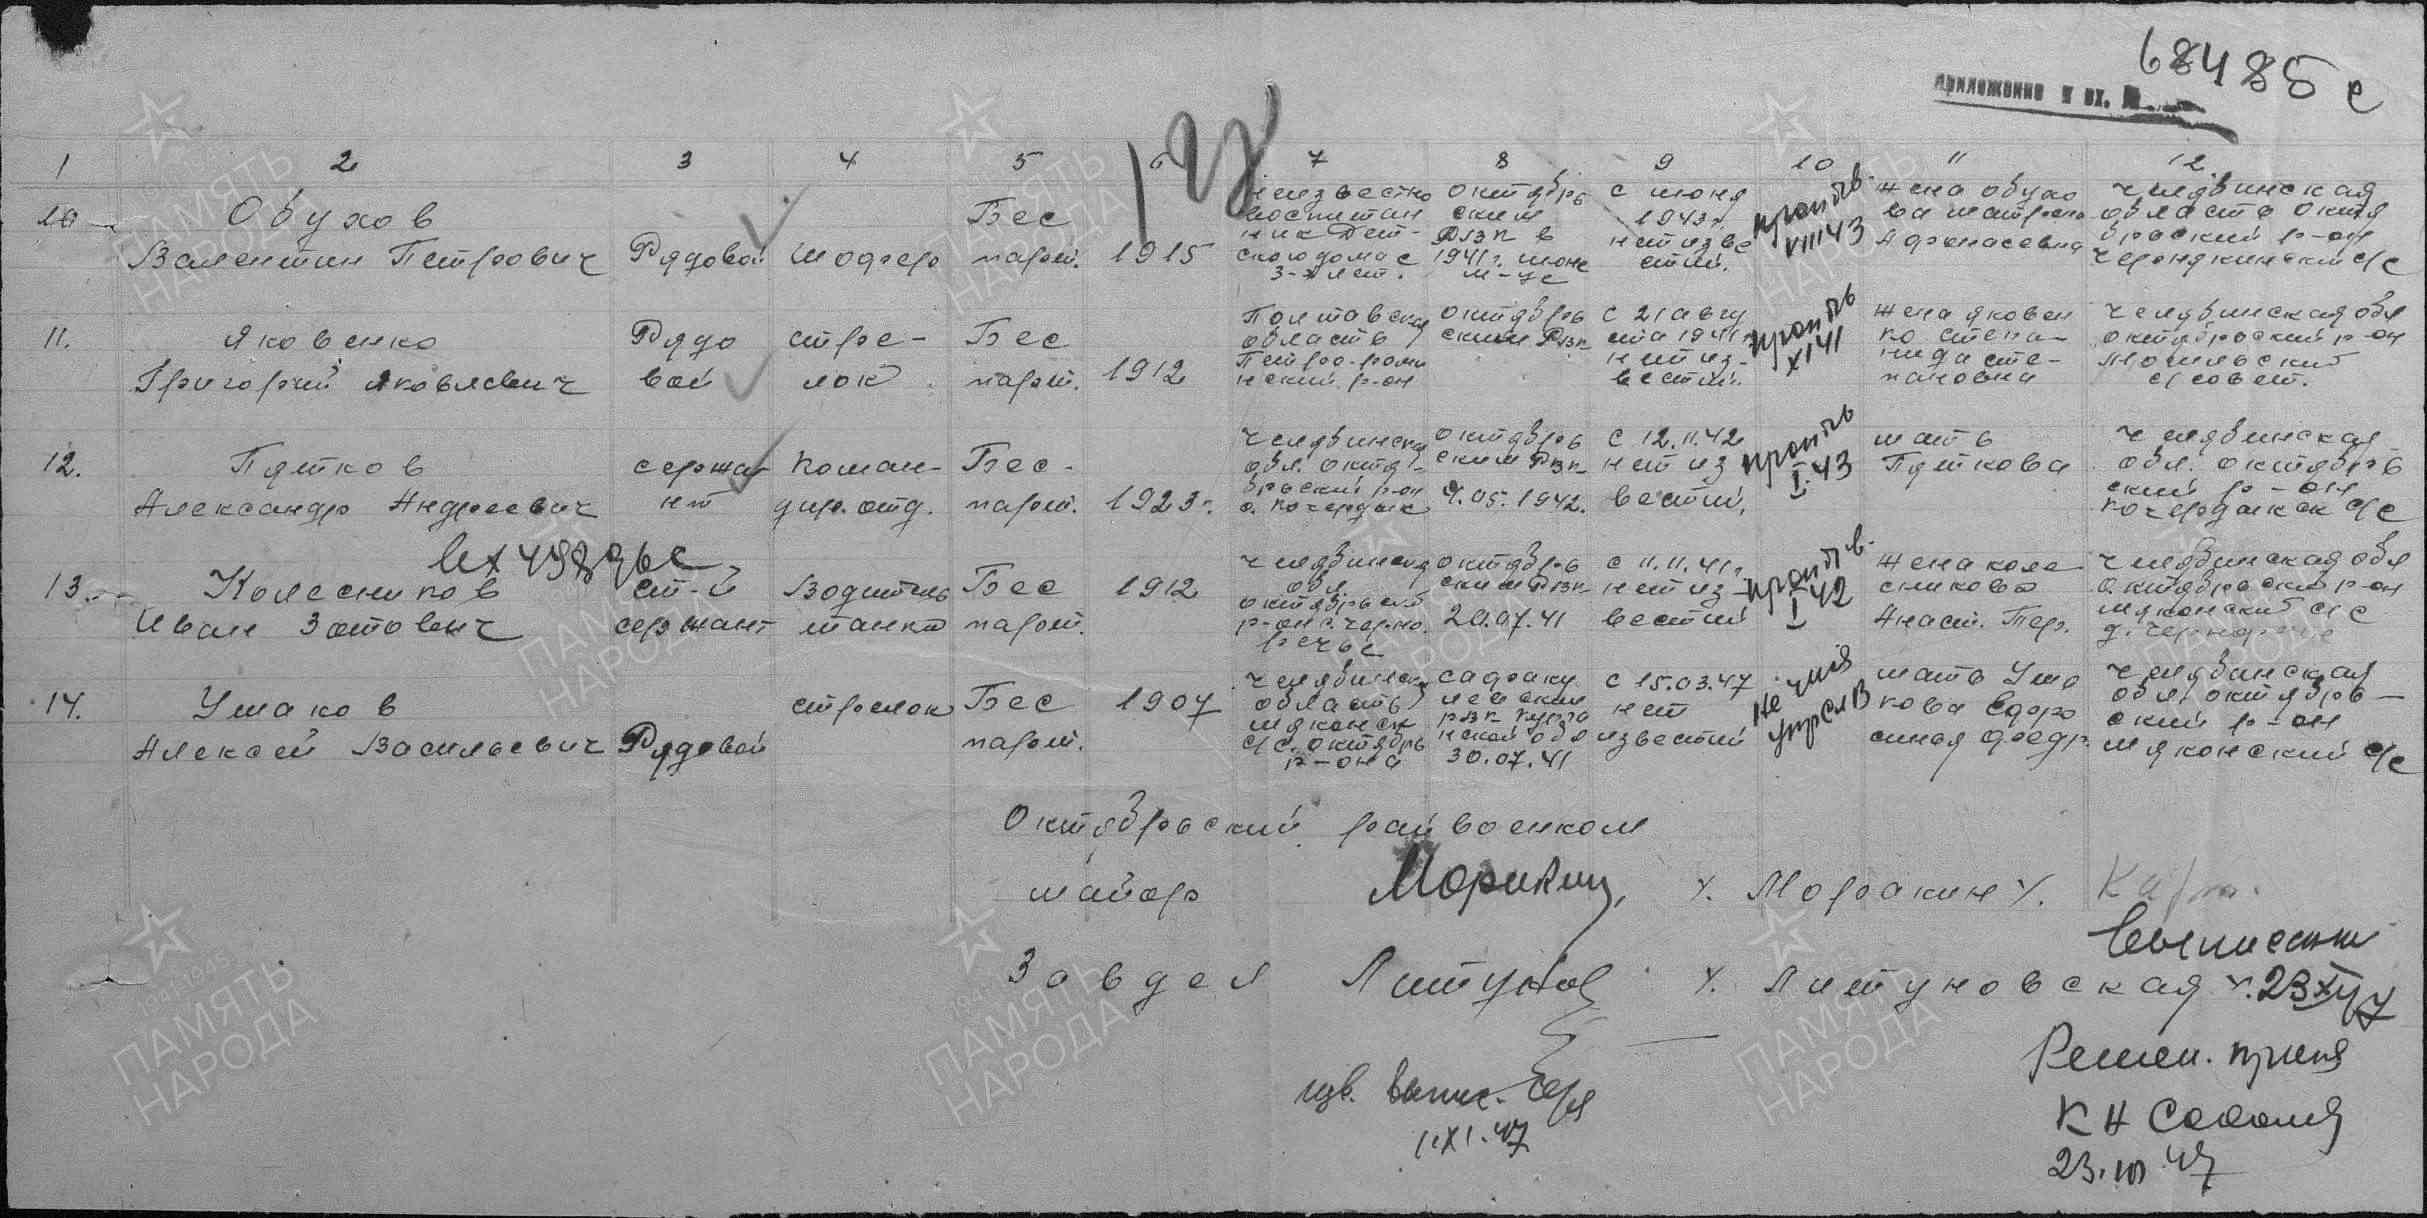 68485с
Приложение к вх. №
1 2 3 4 5 6 7 8 9 10 11 12
10 Обухов Валентин Петрович
Рядовой
шофер
Бес
парт.
1915
неизвестно
воспитан
ник дет-
ского дома с
3-х лет.
октябрь
ским
РВК в
1941 г. июне
м-це
с июня
1943 г.
нет изве
стий.
проп. б/в.
VIII 43
жена Обухо
ва Матрена
Афанасьевна
Челябинская
область Октя
брьский р-он
с/с
11. Яковенко
Григорий Яковлевич
Рядо
вой
стре-
лок
Бес
парт.
1912
Полтавская
область
Петро-рома
нский р-он
октябрь
ским РВК
с 21 авгу
ста 1941 г.
нет из-
вестий.
XI 41
жена Яковен
ко Степа-
нида Сте-
пановна
Челябинская обл
октябрьский р-он
с/совет.
12. Пятков
Александр Андреевич
сержа
нт
Коман-
дир. отд.
Бес-
парт.
1923 г.
Челябинская
обл. Октя-
брьский р-он
с. Кочердык
октябрь
ским РВК
9.05.1942.
с 12.11.42
нет из
вестий,
I 43
мать
Пяткова
Челябинская
обл. октябрь
ский р-он
Кочердыкск с/с
13. Колесников
Иван Зотович
ст-й
сержант
Водитель
танка
Бес
парт.
1912
Челябинская
обл
октябрьский
р-он с. Черно
речье
октябрь
ским РВК
20.07.41
с 11.11.41 г.
нет из-
вестий
I 42
жена Коле
сникова
Анаст. Пер.
Челябинская обл
октябрьский р-он
Мяконский с/с
д. Чернореч
14. Ушаков
Алексей Васильевич
Рядовой
стрелок
Бес
парт.
1907
Челябинская
область
Мяконск
с/с. Октябрь
р-она
Сафаку
левским
РВК Курга
нской обл
30.07.41
с 15.03.47
нет
известий
мать Уша
кова Ефро
синья Федр.
Челябинская
обл. октябрь-
ский р-он
Мяконский с/с
Октябрьский райвоенком
майор Моракин, /. Моракин /.
Завдел Литунов /. Литуновская /.
Выписан
23 XI 47
изв. выпис.
11 XI. 47
23.
47